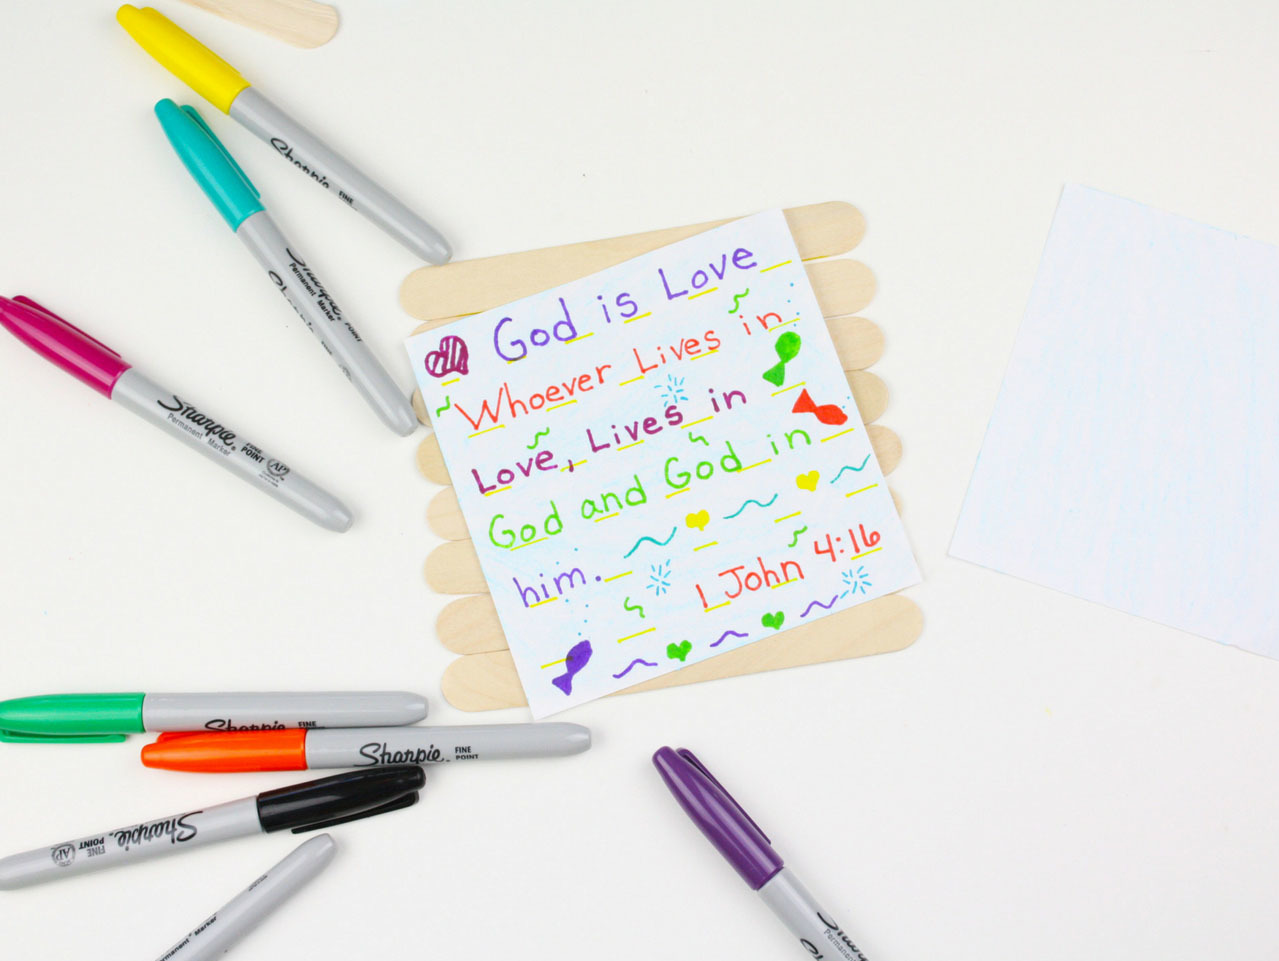 God is Love
Whoever Lives in
Love, Lives in
God and God in
him.
1 John 4:16
Sharpie
FINE
Sharpie
Permanent Marker
Sharpie
Permanent Marker
FINE
POINT
AP
Sharpie
FINE
Sharpie
FINE
POINT
Sharpie
FINE
POINT
AP
Marker
Sharpie
Permanent Marker